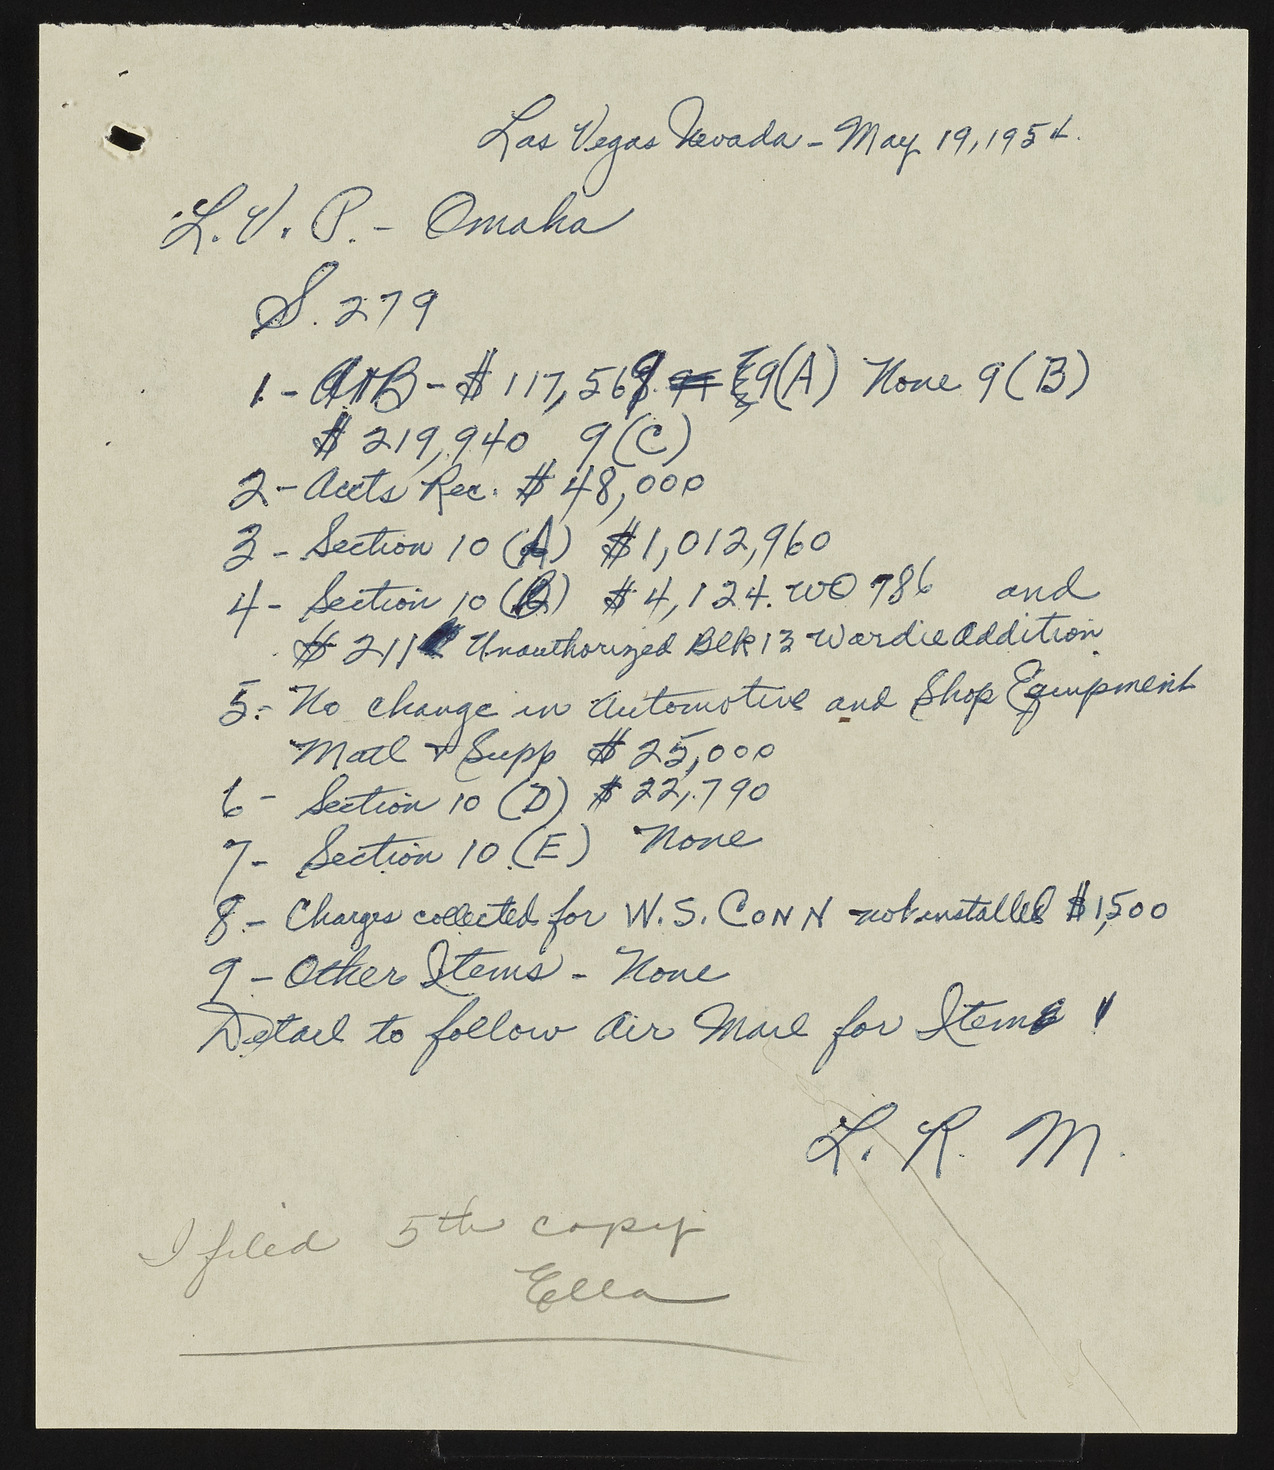 Las Vegas Nevada - May 19, 1954.
L. V. P. - Omaha
S. 279
1 - A&B - $ 117,569. 9(A) None 9(B)
$ 219,940 9(C)
2 - Accts Rec. $ 48,000
3 - Section 10 (A) $1,012,960
4 - Section 10 (B) $4,124. WO 786 and
$ 211 Unauthorized Blk 13 Wardie Addition.
5 - No change in Automotive and Shop Equipment
Matl & Supp $ 25,000
6 - Section 10 (D) $ 22,790
7 - Section 10 (E) None
8 - Charges collected for W. S. CONN not installed $1,500
9 - Other Items - None
Detail to follow Air Mail for Item 1
L. R. M.
I filed 5th copy
Ella